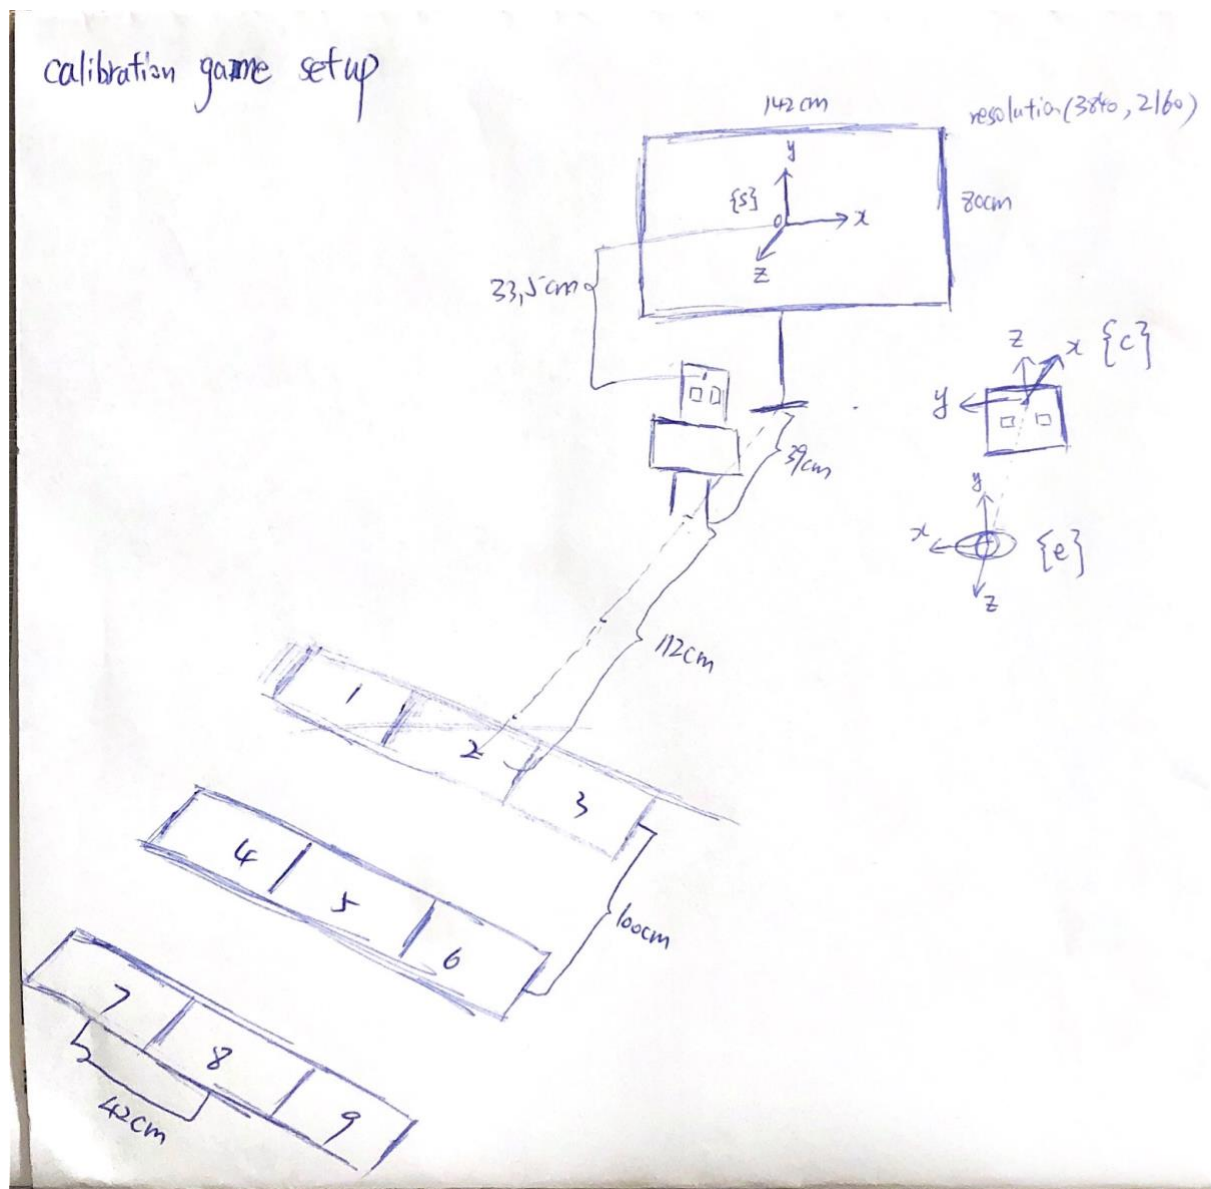 calibration game setup
142cm
resolution(3840, 2160)
y
{s}
80cm
o
x
z
33,5cm
z
x
{c}
y
39cm
y
x
{e}
z
112cm
1
2
3
4
5
6
100cm
7
8
9
42cm